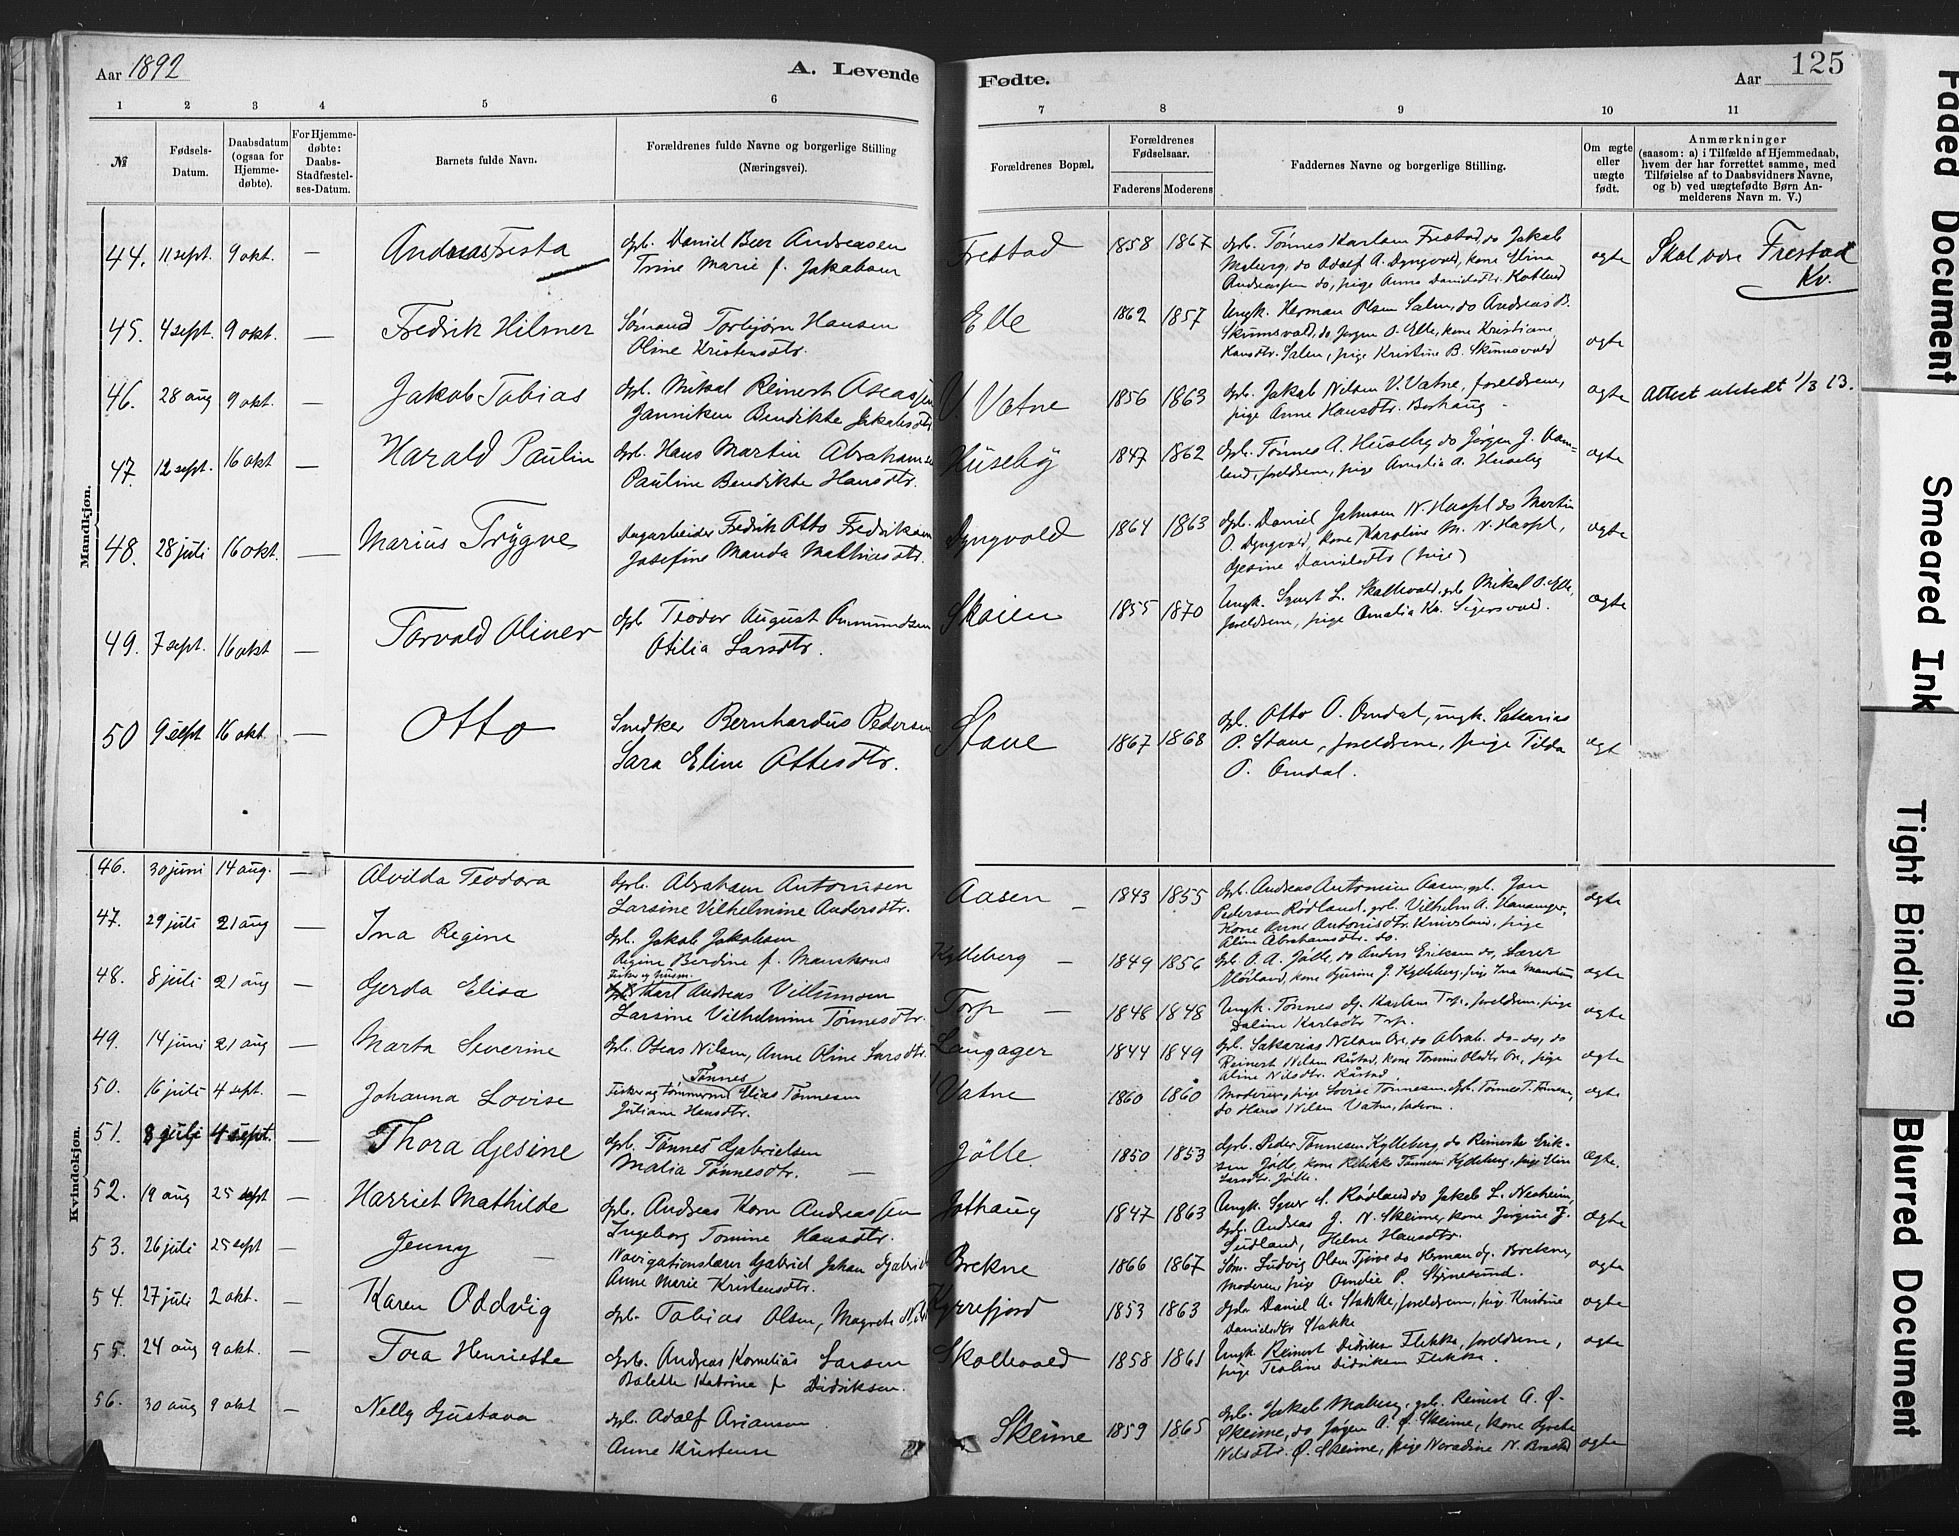 Aar 1892
A. Levende
Fødte.
Aar
125
1 2 3 4 5 6 7 8 9 10 11
№
Fødsels-
Datum.
Daabsdatum
(ogsaa for
Hjemme-
døbte).
For Hjemme-
døbte:
Daabs-
Stadfæstel-
ses-Datum.
Barnets fulde Navn.
Forældrenes fulde Navne og borgerlige Stilling
(Næringsvei).
Forældrenes Bopæl.
Forældrenes
Fødselsaar.
Faderens Moderens
Faddernes Navne og borgerlige Stilling.
Om ægte
eller
uægte
født.
Anmærkninger
(saasom: a) i Tilfælde af Hjemmedaab,
hvem der har forrettet samme, med
Tilføielse af to Daabsvidners Navne,
og b) ved uægtefødte Børn An-
melderens Navn m. V.)
Mandkjøn.
44. 11 sept. 9 okt. — Andreas Frestad
gbr. Daniel Beer Andreasen
Trine Marie f. Jakobsen
Frestad 1858 1867
gbr. Tønnes Karlsen Frestad, do Jakob
Moberg, do Adolf A. Dyngvold, kone Elina
Andreassen do, pige Anna Danielsdtr.
ægte
Skal være Frestad
Kv.
45. 4 sept. 9 okt. — Fredrik Hilmer
Sømand Torbjørn Hansen
Oline Kristensdtr.
Elle 1862 1857
Ungk. Herman Olsen Salen, do Andreas B.
Skumsvold, do Jørgen O. Elle, kone Kristiane
Hansdtr. Salen, pige Kristine B. Skumsvold
ægte
46. 28 aug 9 okt. — Jakob Tobias
gbr. Mikal Reinert Aseassen
Janniken Bendikte Jakobsdtr
V. Vatne 1856 1863
gbr. Jakob Nilsen V. Vatne, foreldrene,
pige Anne Hansdtr. Borhaug
ægte
Attest utstedt 1/3 13.
47. 12 sept. 16 okt — Harald Paulin
gbr. Hans Martin Abrahamsen
Pauline Bendikte Hansdtr.
Huseby 1847 1862
gbr. Tønnes A. Huseby do Jørgen J. Vam-
land, foreldrene, pige Amalia A. Huseby
ægte
48. 28 juli 16 okt. — Marius Trygve
Dagarbeider Fredrik Otto Fredriksen
Josefine Manda Mathiasdtr.
Dyngvold 1864 1863
gbr. Daniel Jahnsen N. Haapl do Martin
O. Dyngvold, kone Karoline M. N. Haapl,
Gjesine Danielsdtr (pige)
ægte
49. 7 sept. 16 okt — Torvald Oliner
gbr Teodor August Ommundsen
Otilia Larsdtr.
Skeien 1855 1870
Ungk. Syvert L. Skollevold, gbr Mikal O. Elle,
foreldrene, pige Amalia Kr. Sigersvold.
ægte
50 9 sept 16 okt. — Otto
Snedker Bernhardus Pedersen
Sara Eline Ottesdtr.
Stave 1867 1868
gbr. Otto O. Omdal, ungk. Sakarias
P. Stave, foreldrene, pige Tilda
O. Omdal.
ægte
Kvindekjøn.
46. 30 juni 14 aug. — Alvilda Teodora
gbr. Abraham Antonisen
Larsine Vilhelmine Andersdtr.
Aasen — 1843 1855
gbr. Andreas Antonisen Aasen, gbr. Jan
Pedersen Rødland, gbr. Vilhelm A. Hananger,
Kone Anne Antonisdtr. Kniverland, pige
Aline Abrahamsdtr. do.
ægte
47. 29 juli 21 aug — Ina Regine
gbr. Jakob Jakobsen
Regine Berdine f. Monsens
Kylleberg — 1849 1856
gbr. A. A. Jølle, do Anders Eriksen do, Lærer
kone Gjurine J. Kylleberg, pige Ina
ægte
48. 8 juli 21 aug — Gerda Elisa
Fisker og husm.
Karl Andreas Villumsen
Larsine Vilhelmine Tønnesdtr.
Torp — 1846 1848
Ungk. Tønnes og Karlsen Torp, foreldrene, pige
Daline Karlsdtr Torp.
ægte
49. 14 juni 21 aug — Marta Severine
gbr. Oseas Nilsen, Anne Oline Larsdtr.
Langager 1844 1849
gbr. Sakarias Nilsen Ore, do Abrah. do-do, do
Reinert Nilsen Røstad, kone Tomine Olsdtr. Ore, pige
Aline Nilsdtr. Røstad
ægte
50. 16 juli 4 sept. — Johanna Lovise
Tønnes
Fisker og tømmermd Elias Tønnesen
Juliane Hansdtr.
Vatne 1860 1860
Moderen, pige Lovise Tønnesen, gbr. Tønnes T. Tønnesen,
do Hans Nilsen Vatne, faderen.
ægte
51. 8 juli 4 sept. — Thora Gjesine
gbr. Tønnes Gabrielsen
Malia Tønnesdtr. —
Jølle. 1850 1853
gbr. Peder Tønnesen Kylleberg, do Reinert Erik-
sen Jølle, kone Rebekke Tønnesen Kylleberg, pige Elen
Larsdtr. Jølle.
ægte.
52. 19 aug 25 sept — Harriet Mathilde
gbr. Andreas Korn Andreassen
Ingeborg Tomine Hansdtr.
Jothaug 1847 1863
Ungk. Syver S. Rødland do Jakob L. Neoheim,
gbr. Andreas J. N. Skeime, kone Jørgine J.
Sudland, Helene Hansdtr.
ægte
53. 26 juli 25 sept — Jenny —
Navigationslærer Gabriel Johan Gabriels
Anne Marie Kristensdtr.
Brekne 1866 1867
Stm. Ludvig Olsen Tjøve do Herman G. Brekne,
moderen, pige Amalie P. Stjernesund.
ægte
54. 27 juli 2 okt. — Karen Oddvig
gbr. Tobias Olsen, Magrete Nilsdtr
Kjørrefjord 1853 1863
gbr. Daniel A. Stakke, foreldrene, pige Kristine
Danielsdtr Stakke
ægte
55. 24 aug 9 okt. — Tora Henriette
gbr. Andreas Kornelius Larsen
Bolette Katrine f. Didriksen.
Skollevold 1858 1861
Ungk Reinert Didriksen Flekke, foreldrene,
pige Teoline Didriksen Flekke.
ægte
56. 30 aug 9 okt — Nelly Gustava
gbr. Adolf Arianson
Anne Kristense
Skeime 1859 1865
gbr. Jakob Moberg, gbr. Reinert A. Ø.
Skeime, do Jørgen A. Ø. Skeime, kone Gyrete
Nilsdtr. Ø. Skeime, pige Noradine N.
ægte
Faded Document
Smeared Ink
Tight Binding
Blurred Document